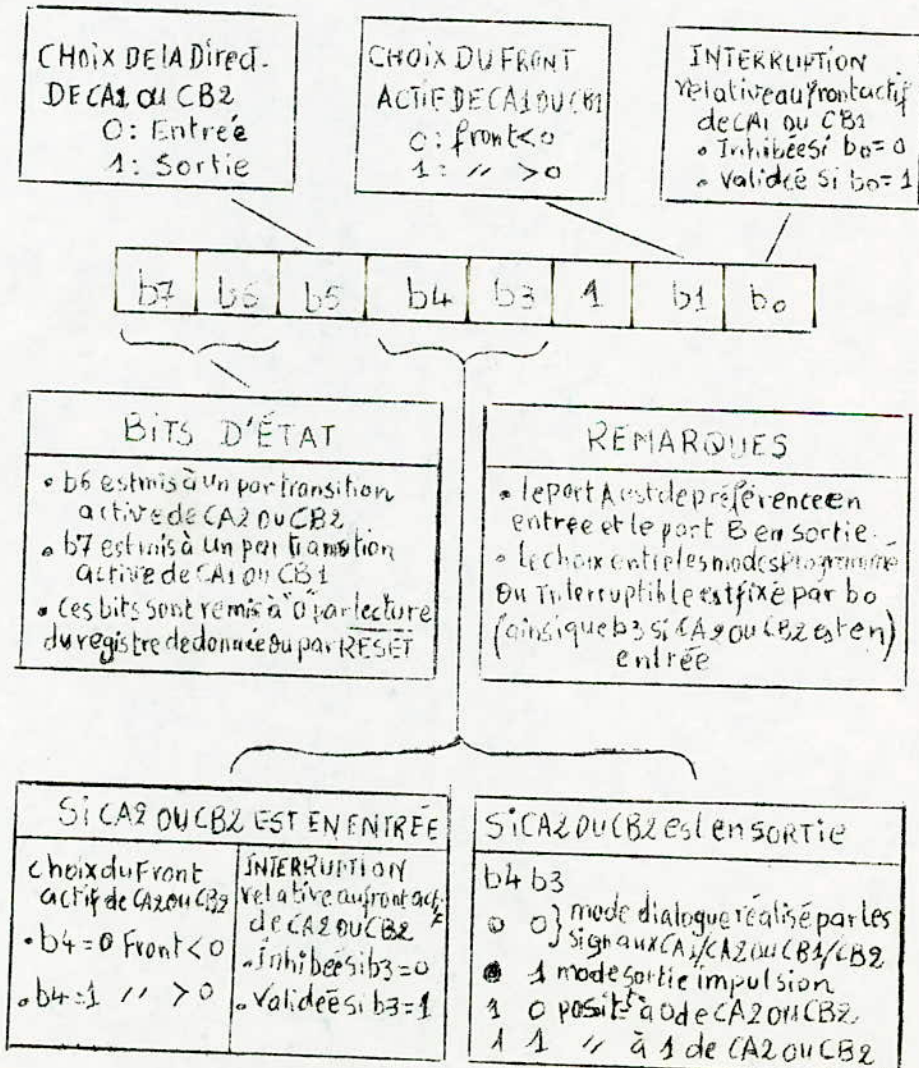 CHOIX DE LA Direct.
DE CA2 OU CB2
0: Entrée
1: Sortie
CHOIX DU FRONT
ACTIF DE CA1 OU CB1
0: front<0
1: // >0
INTERRUPTION
relative au front actif
de CA1 OU CB1
• Inhibée si b0=0
• Validée si b0=1
b7 b6 b5 b4 b3 1 b1 b0
BITS D'ÉTAT
• b6 est mis à un par transition
active de CA2 OU CB2
• b7 est mis à un par transition
active de CA1 OU CB1
• Ces bits sont remis à "0" par lecture
du registre de donnée ou par RESET
REMARQUES
• le port A est de préférence en
entrée et le port B en sortie.
• Le choix entre les modes Programmé
OU Interruptible est fixé par b0
(ainsi que b3 si CA2 OU CB2 est en)
entrée
Si CA2 OU CB2 EST EN ENTRÉE
choix du Front
actif de CA2 OU CB2
• b4=0 Front<0
• b4=1 // >0
INTERRUPTION
relative au front act.
de CA2 OU CB2
• Inhibée si b3=0
• Validée si b3=1
Si CA2 OU CB2 est en SORTIE
b4 b3
0 0 } mode dialogue réalisé par les
signaux CA1/CA2 OU CB1/CB2
1 mode sortie impulsion
1 0 posit° à 0 de CA2 OU CB2
1 1 // à 1 de CA2 OU CB2